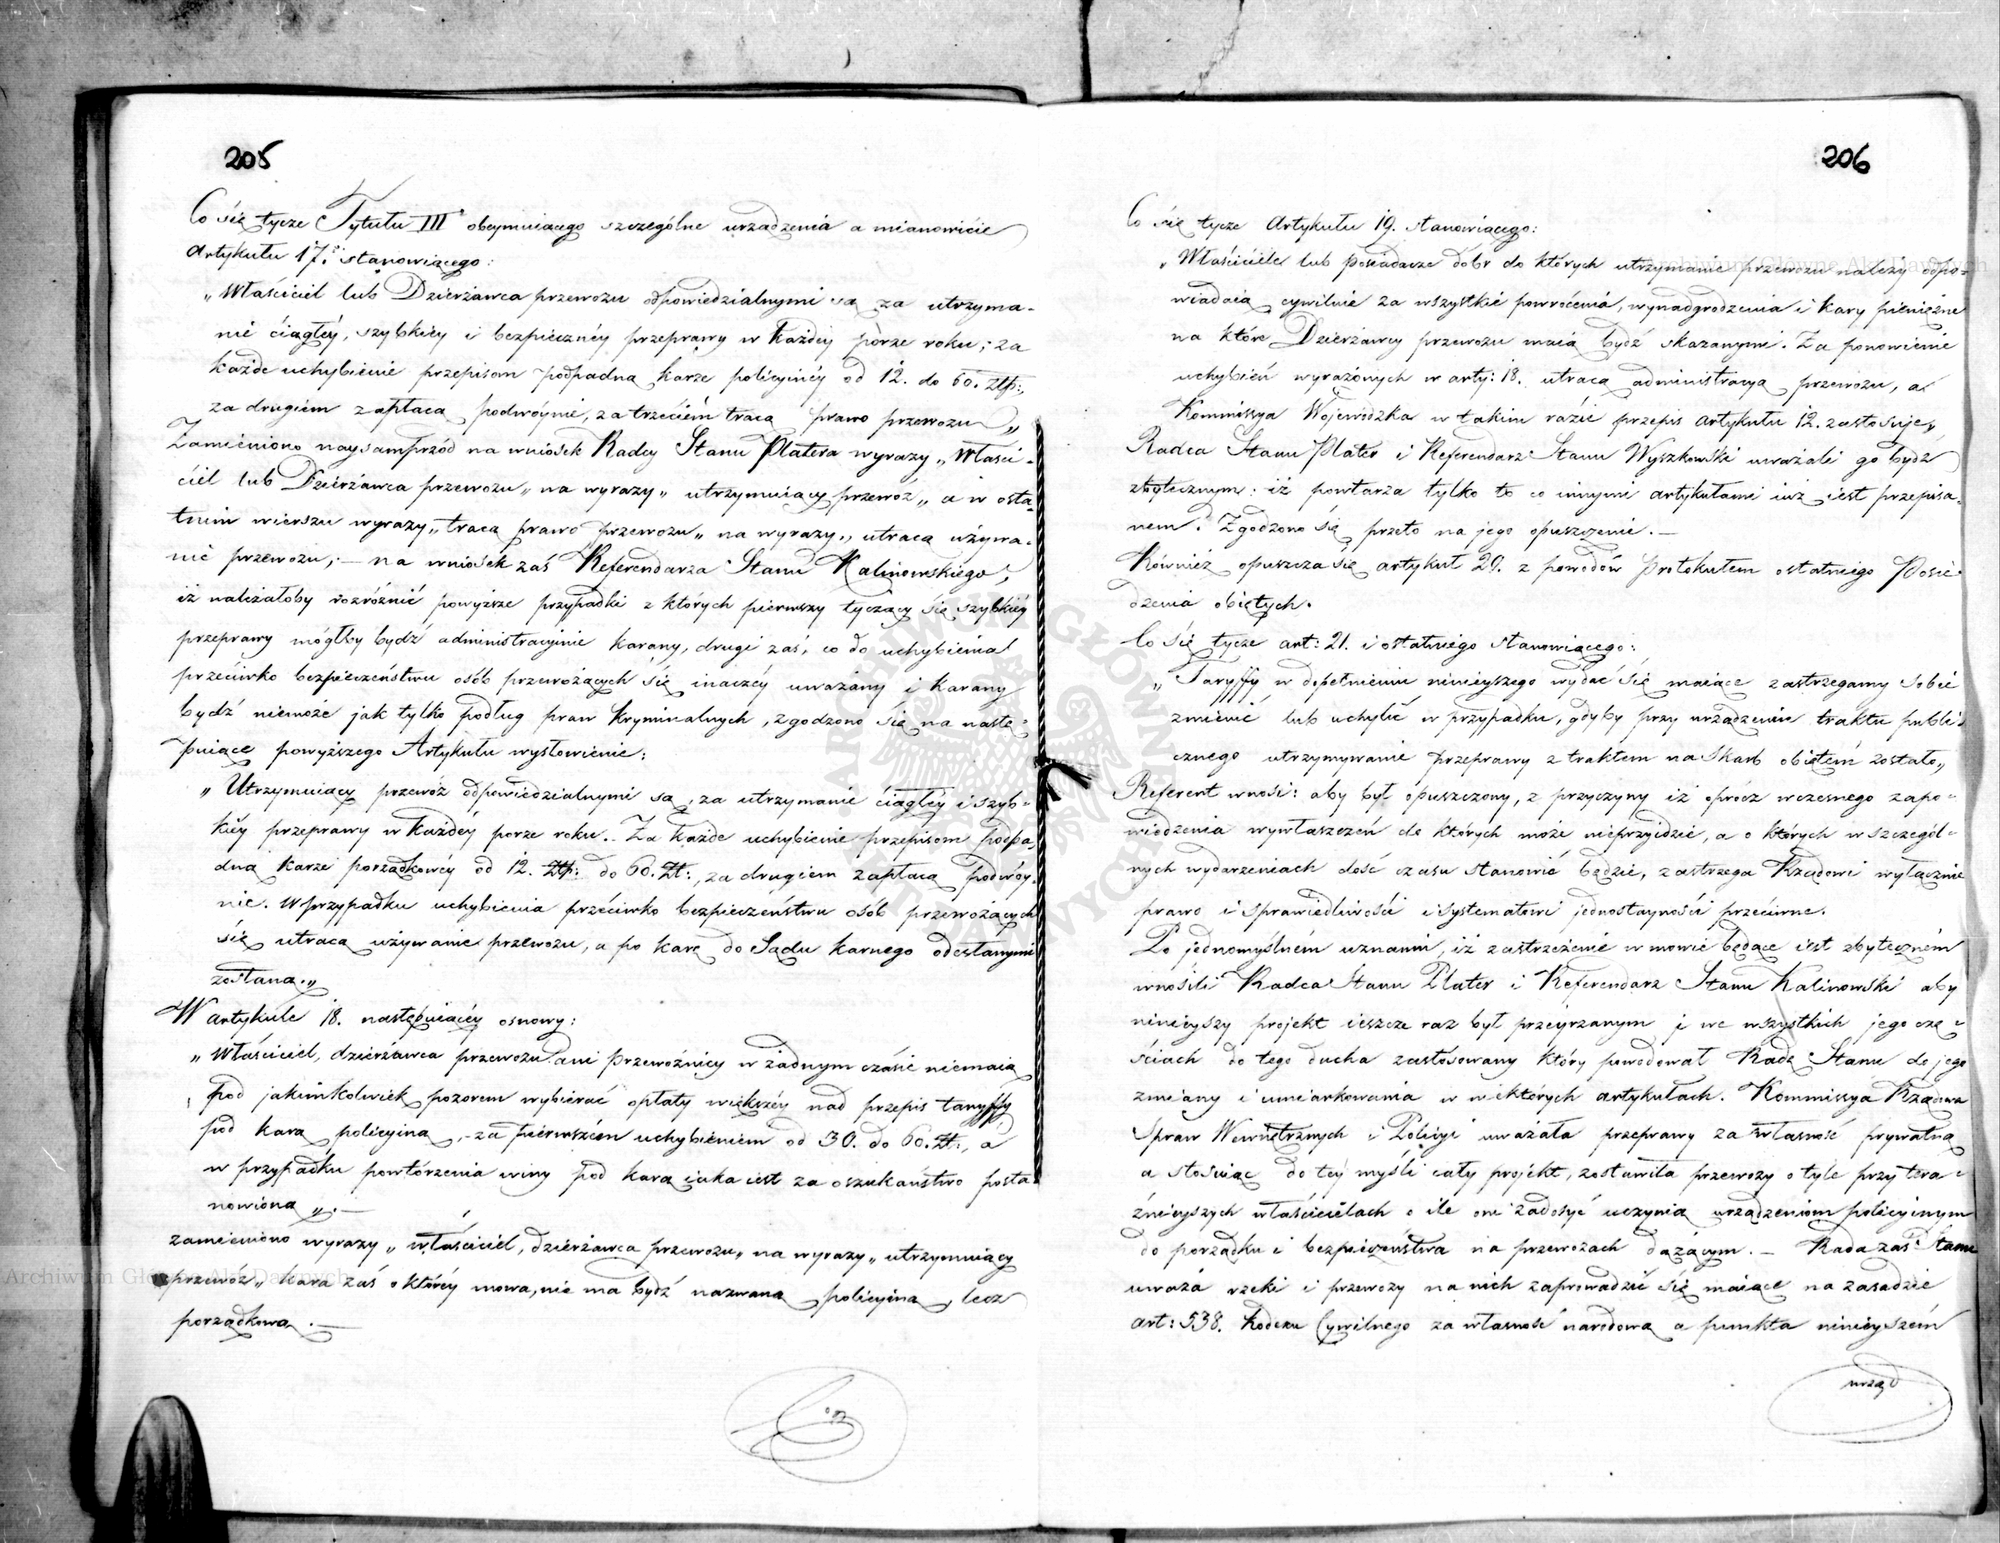 205
Co się tycze Tytułu III° obeymuiącego szczególne urządzenia a mianowicie
Artykułu 17.° stanowiącego:
„Właściciel lub Dzierżawca przewozu odpowiedzialnymi są za utrzyma-
nie ciągłéy, szybkiéy i bezpiecznéy przeprawy w każdéy porze roku; za
każde uchybienie przepisom podpadną karze policyinéy od 12. do 60. złp:,
za drugiem zapłacą podwóynie, za trzeciém tracą prawo przewozu„
Zamieniono naysamprzód na wniosek Radcy Stanu Platera wyrazy „Właści-
ciel lub Dzierżawca przewozu„ na wyrazy „utrzymuiący przewóz„ a w osta-
tnim wierszu wyrazy „tracą prawo przewozu„ na wyrazy „utracą używa-
nie przewozu; — na wniosek zaś Referendarza Stanu Kalinowskiego,
iż należałoby rozróżnić powyższe przypadki z których pierwszy tyczący się szybkiéy
przeprawy mógłby bydź administracyinie karany, drugi zaś, co do uchybienia
przeciwko bezpieczeństwu osób przewożących się inaczéy uważany i karany
bydź niemoże jak tylko podług praw kryminalnych, zgodzono się na nastę-
puiące powyższego Artykułu wysłowienie:
„Utrzymuiący przewóz odpowiedzialnymi są, za utrzymanie ciągłéy i szyb-
kiéy przeprawy w każdéy porze roku. Za każde uchybienie przepisom podpa-
dną karze porządkowéy od 12. złp: do 60. Zł:, za drugiem zapłacą podwóy-
nie. W przypadku uchybienia przeciwko bezpieczeństwu osób przewożących
się utracą używanie przewozu, a po karę do Sądu karnego odesłanymi
zostaną.„
W artykule 18. następuiącéy osnowy:
„Właściciel, dzierżawca przewozu ani przewoźnicy w żadnym czasie niemaią
pod jakimkolwiek pozorem wybierać opłaty większéy nad przepis taryffy
pod karą policyiną, za pierwszém uchybieniem od 30. do 60. Zł:, a
w przypadku powtórzenia winy pod karą iaka iest za oszukaństwo posta-
nowiona„. —
zamieniono wyrazy „właściciel, dzierżawca przewozu„ na wyrazy „utrzymuiący
przewóz„ kara zaś o któréy mowa, nie ma bydź nazwaną policyiną, lecz
porządkową. —
206
Co się tycze Artykułu 19. stanowiącego:
„Właściciele lub posiadacze dóbr do których utrzymanie przewozu należy odpo-
wiadaią cywilnie za wszystkie powrócenia, wynadgrodzenia i kary pieniężne
na które Dzierżawcy przewozu maią bydź skazanymi. Za ponowienie
uchybień wyrażonych w arty: 18. utracą administracyą przewozu, a
Kommissya Woiewódzka w takim razie przepis artykułu 12. zastosuje„
Radca Stanu Plater i Referendarz Stanu Wyszkowski uważali go bydź
zbytecznym: iż powtarza tylko to co innymi artykułami iuż iest przepisa-
nem. Zgodzono się przeto na jego opuszczenie. —
Również opuszcza się artykuł 20. z powodów protokułem ostatniego Posie-
dzenia obiętych.
Co się tycze art: 21. i ostatniego stanowiącego:
„Taryffy w dopełnieniu ninieyszego wydać się maiące zastrzegamy sobie
zmienić lub uchylić w przypadku, gdyby przy urządzeniu traktu publi-
cznego utrzymywanie przeprawy z traktem na Skarb obiętém zostało„
Referent wnosi: aby był opuszczony, z przyczyny iż oprócz wczesnego zapo-
wiedzenia wywłaszczeń do których może nieprzyidzie, a o których w szczegól-
nych wydarzeniach dość czasu stanowić będzie, zastrzega Rządowi wyłącznie
prawo i sprawiedliwości i systematowi jednostayności przeciwne.
Po jednomyślném uznaniu, iż zastrzeżenie w mowie będące iest zbyteczném
wnosili Radca Stanu Plater i Referendarz Stanu Kalinowski aby
ninieyszy projekt ieszcze raz był przeyrzanym i we wszystkich jego czę-
ściach do tego ducha zastosowany który powodował Radę Stanu do jego
zmiany i umiarkowania w niektórych artykułach. Kommissya Rządowa
Spraw Wewnętrznych i Policyi uważała przeprawy za własność prywatną
a stosuiąc do téy myśli cały projekt, zostawiła przewozy o tyle przy tera-
źnieyszych właścicielach o ile oni zadosyć uczynią urządzeniom policyinym
do porządku i bezpieczeństwa na przewozach dążącym. — Rada zaś Stanu
uważa rzeki i przewozy na nich zaprowadzić się maiące na zasadzie
art: 538. Kodexu Cywilnego za własność narodową a punkta ninieyszém
urząd